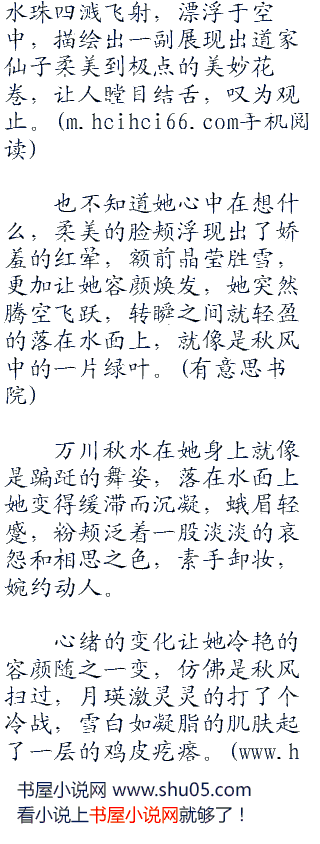 水珠四溅飞射，漂浮于空
中，描绘出一副展现出道家
仙子柔美到极点的美妙花
卷，让人瞠目结舌，叹为观
止。(m.hcihci66.com手机阅
读)
也不知道她心中在想什
么，柔美的脸颊浮现出了娇
羞的红晕，额前晶莹胜雪，
更加让她容颜焕发，她突然
腾空飞跃，转瞬之间就轻盈
的落在水面上，就像是秋风
中的一片绿叶。(有意思书
院)
万川秋水在她身上就像
是蹁跹的舞姿，落在水面上
她变得缓滞而沉凝，蛾眉轻
蹙，粉颊泛着一股淡淡的哀
怨和相思之色，素手卸妆，
婉约动人。
心绪的变化让她冷艳的
容颜随之一变，仿佛是秋风
扫过，月瑛激灵灵的打了个
冷战，雪白如凝脂的肌肤起
了一层的鸡皮疙瘩。(www.h
书屋小说网 www.shu05.com
看小说上书屋小说网就够了！